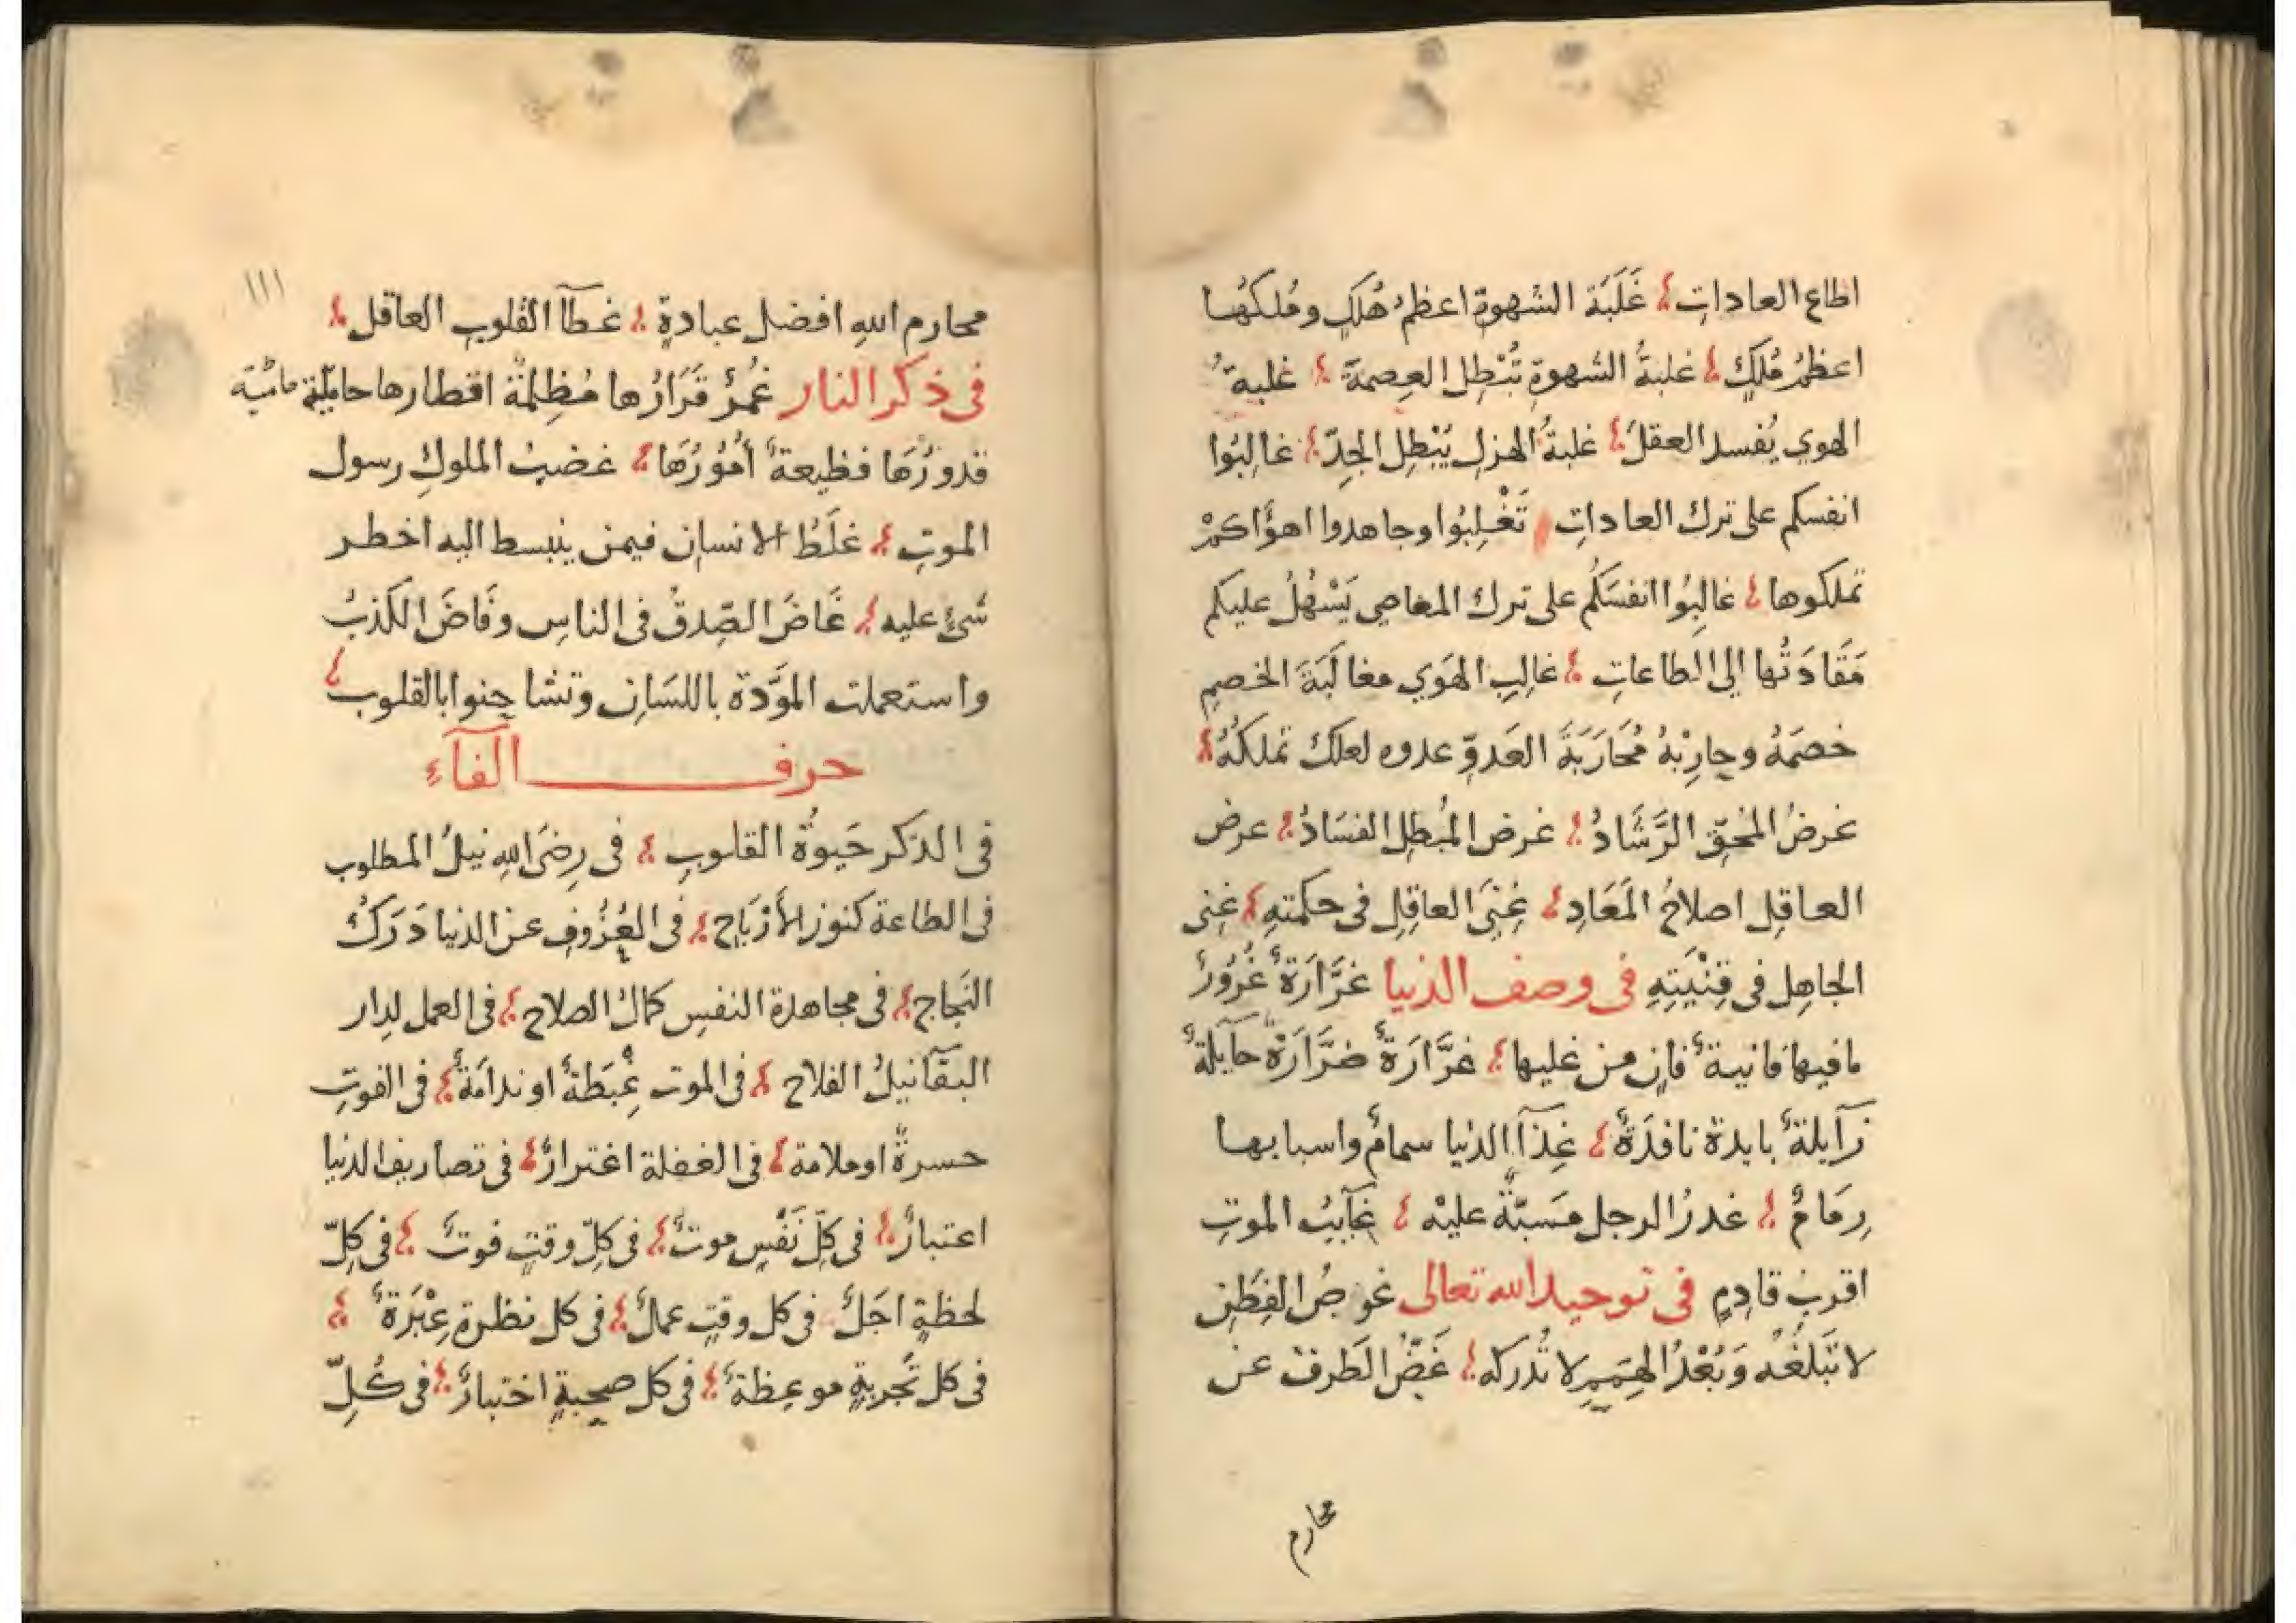 اطاع العاداتِ ؛ غَلَبَة الشهوةِ اعظمُ هُلكٍ ومُلكهُا
اعظمُ مُلكٍ ؛ غلبةُ الشهوةِ تُبْطِل العِصمةَ ؛ غلبةُ
الهوي يُفسد العقلَ ؛ غلبةُ الهزلِ يُبْطِل الجِدّ ؛ غالِبُوا
انفسكم على ترك العاداتِ تَغْلِبُوا وجاهدوا اهوٰاكمْ
تملكوها ؛ غالِبُوا انفسَكُم على ترك المعاصي يَسْهُلُ عليكم
مَقَادَتُها إلى الطاعاتِ ؛ غالِبِ الهَوي مغالَبَةَ الخصمِ
خصمَهُ وحارِبْهُ مُحَارَبَةَ العَدوِّ عدوه لعلك تملكهُ ؛
غرضُ المُحقِّ الرَّشَادُ ؛ غرض المُبطِل الفسَادُ ؛ عرض
العاقِل اصلاحُ المَعَادِ ؛ غِنَي العاقِلِ فى حكمتهِ ؛ غِنى
الجاهِل فى قِنْيَتِهِ فى وصف الدنيا غرَّارَةٌ غُرُورٌ
مافيها فانيةٌ فانٍ من عليها ؛ غرَّارَةٌ ضرَّارَةٌ حآيلةٌ
زآيلةٌ بايدة نافدَةٌ ؛ غِذآ الدنيا سمامٌ واسبابها
رِمَامٌ ؛ غدرُ الرجل مَسَبّةٌ عليْه ؛ غآيبُ الموتِ
اقربُ قادِمٍ فى توحيد الله تعالى غوصُ الفِطَنِ
لا تَبلغُهُ وَبُعْدُ الهِمَمِ لا تُدركه ؛ غَضُّ الطَرفِ عن
محارم
١١١
محارم اللهِ افضل عبادةٍ ؛ غطآ القلوبِ العاقل ؛
فى ذكر النار غَمِرٌ قَرَارُها مُظِلمَةٌ اقطارها حاميَّة
قدورُهَا فظيعةٌ أمُورُهَا ؛ غضبُ الملوكِ رسول
الموتِ ؛ غلَطُ الانسانِ فيمن ينبسط اليه اخطر
شئٍ عليه ؛ غَاضَ الصِّدقُ فى الناسِ وفَاضَ الكذبُ
واستعملت المودّة باللسَانِ وتشاحنوا بالقلوب ؛
حرف الفآءِ
فى الذكر حَيوٰة القلوبِ ؛ فى رِضَى اللهِ نيلُ المطلوب
فى الطاعة كنوز الأرْبَاحِ ؛ فى العُزُوفِ عن الدنيا دَرَكُ
النَجاحِ ؛ فى مجاهدة النفسِ كمالُ الصلاح ؛ فى العمل لدِار
البقآ نيلُ الفلاح ؛ فى الموت غِبْطَةٌ او ندامَةٌ ؛ فى الفوتِ
حسرةٌ اوملامة ؛ فى الغفلة اغترارٌ ؛ فى تصاريف الدنيا
اعتبارٌ ؛ فى كلِّ نَفَسٍ موتٌ ؛ فى كلِّ وقتٍ فوتٌ ؛ فى كلِّ
لحظةٍ اجَلٌ فى كل وقتٍ عملٌ ؛ فى كل نظرةٍ عِبْرَةٌ ؛
فى كل تجربةٍ موعِظةٌ ؛ فى كل صحبةٍ اختبارٌ ؛ فى كُلِّ